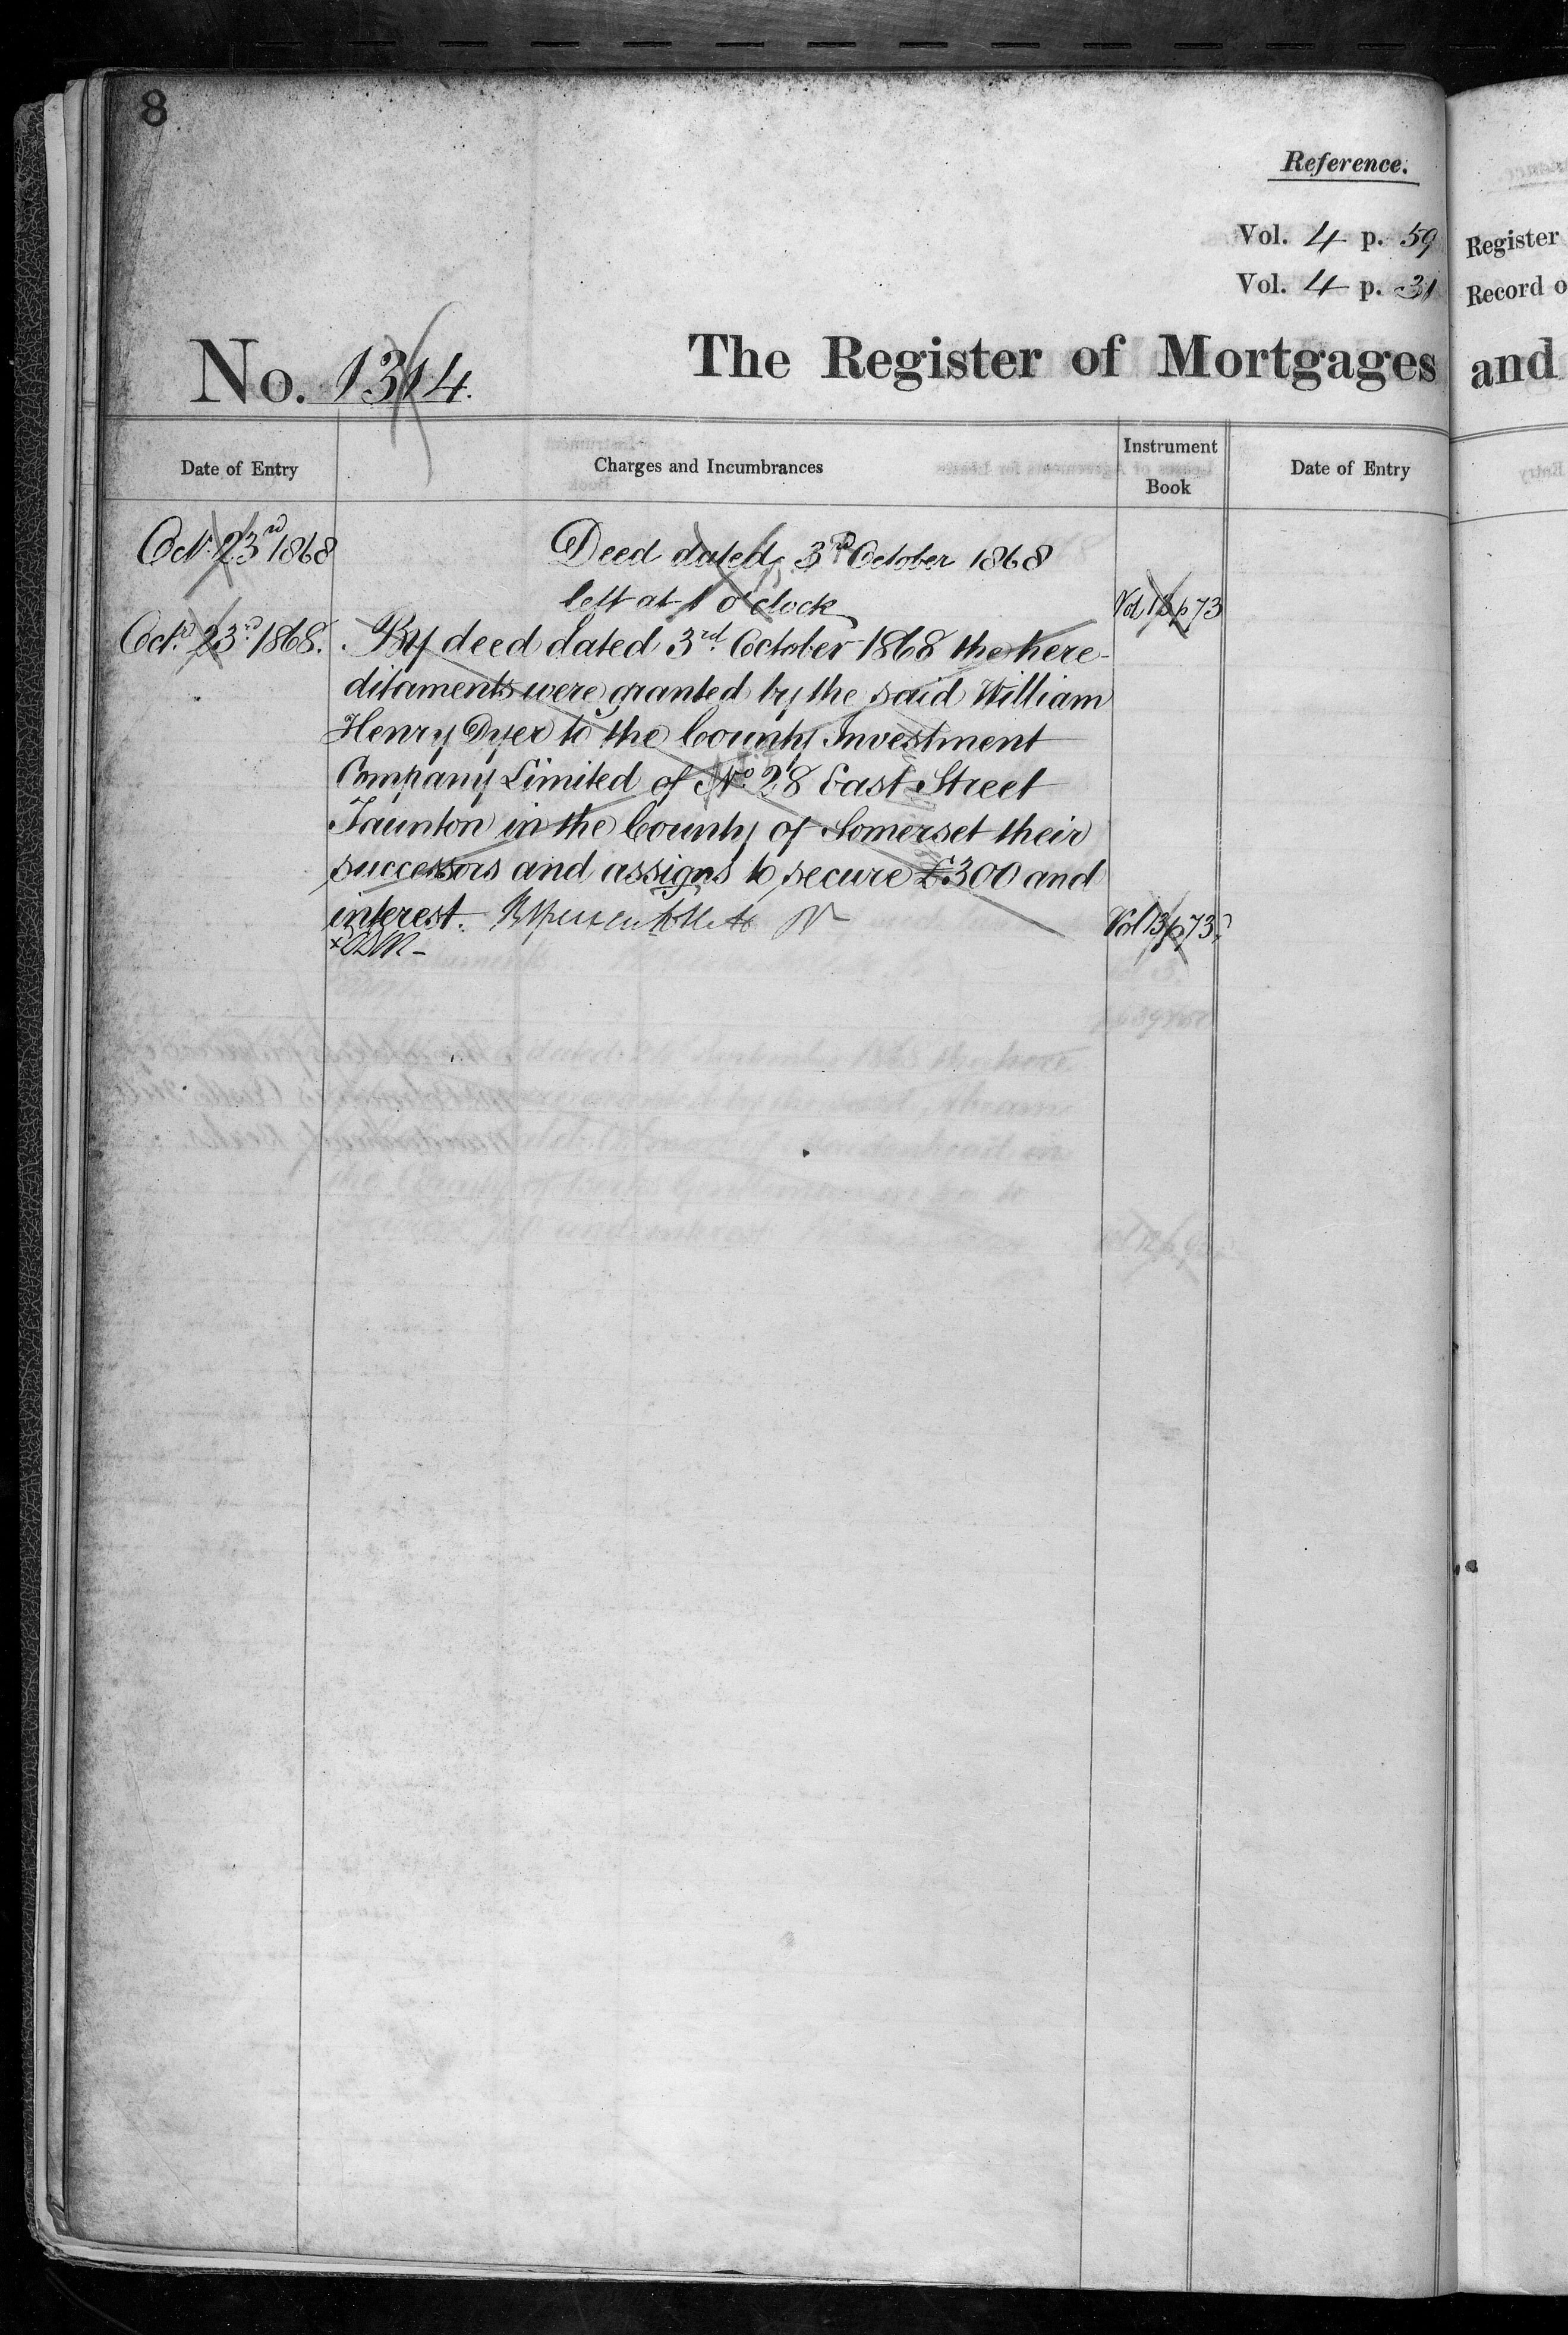 8
Reference.
Vol. 4 p. 59
Register
Vol. 4 p. 31
Record o
No. 1314.
The Register of Mortgages
and
Date of Entry
Charges and Incumbrances
Instrument
Book
Date of Entry
Oct. 23rd 1868
Deed dated 3rd October 1868
left at 1 o'clock
Vol 13 p 73
Oct. 23rd 1868.
By deed dated 3rd October 1868 the here-
ditaments were granted by the said William
Henry Dyer to the County Investment
Company Limited of No. 28 East Street
Taunton in the County of Somerset their
successors and assigns to secure £300 and
interest.
Vol 13 p 73